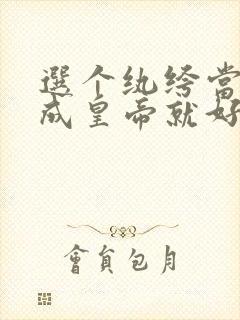 選个纨绔當
成皇帝就好
會員包月